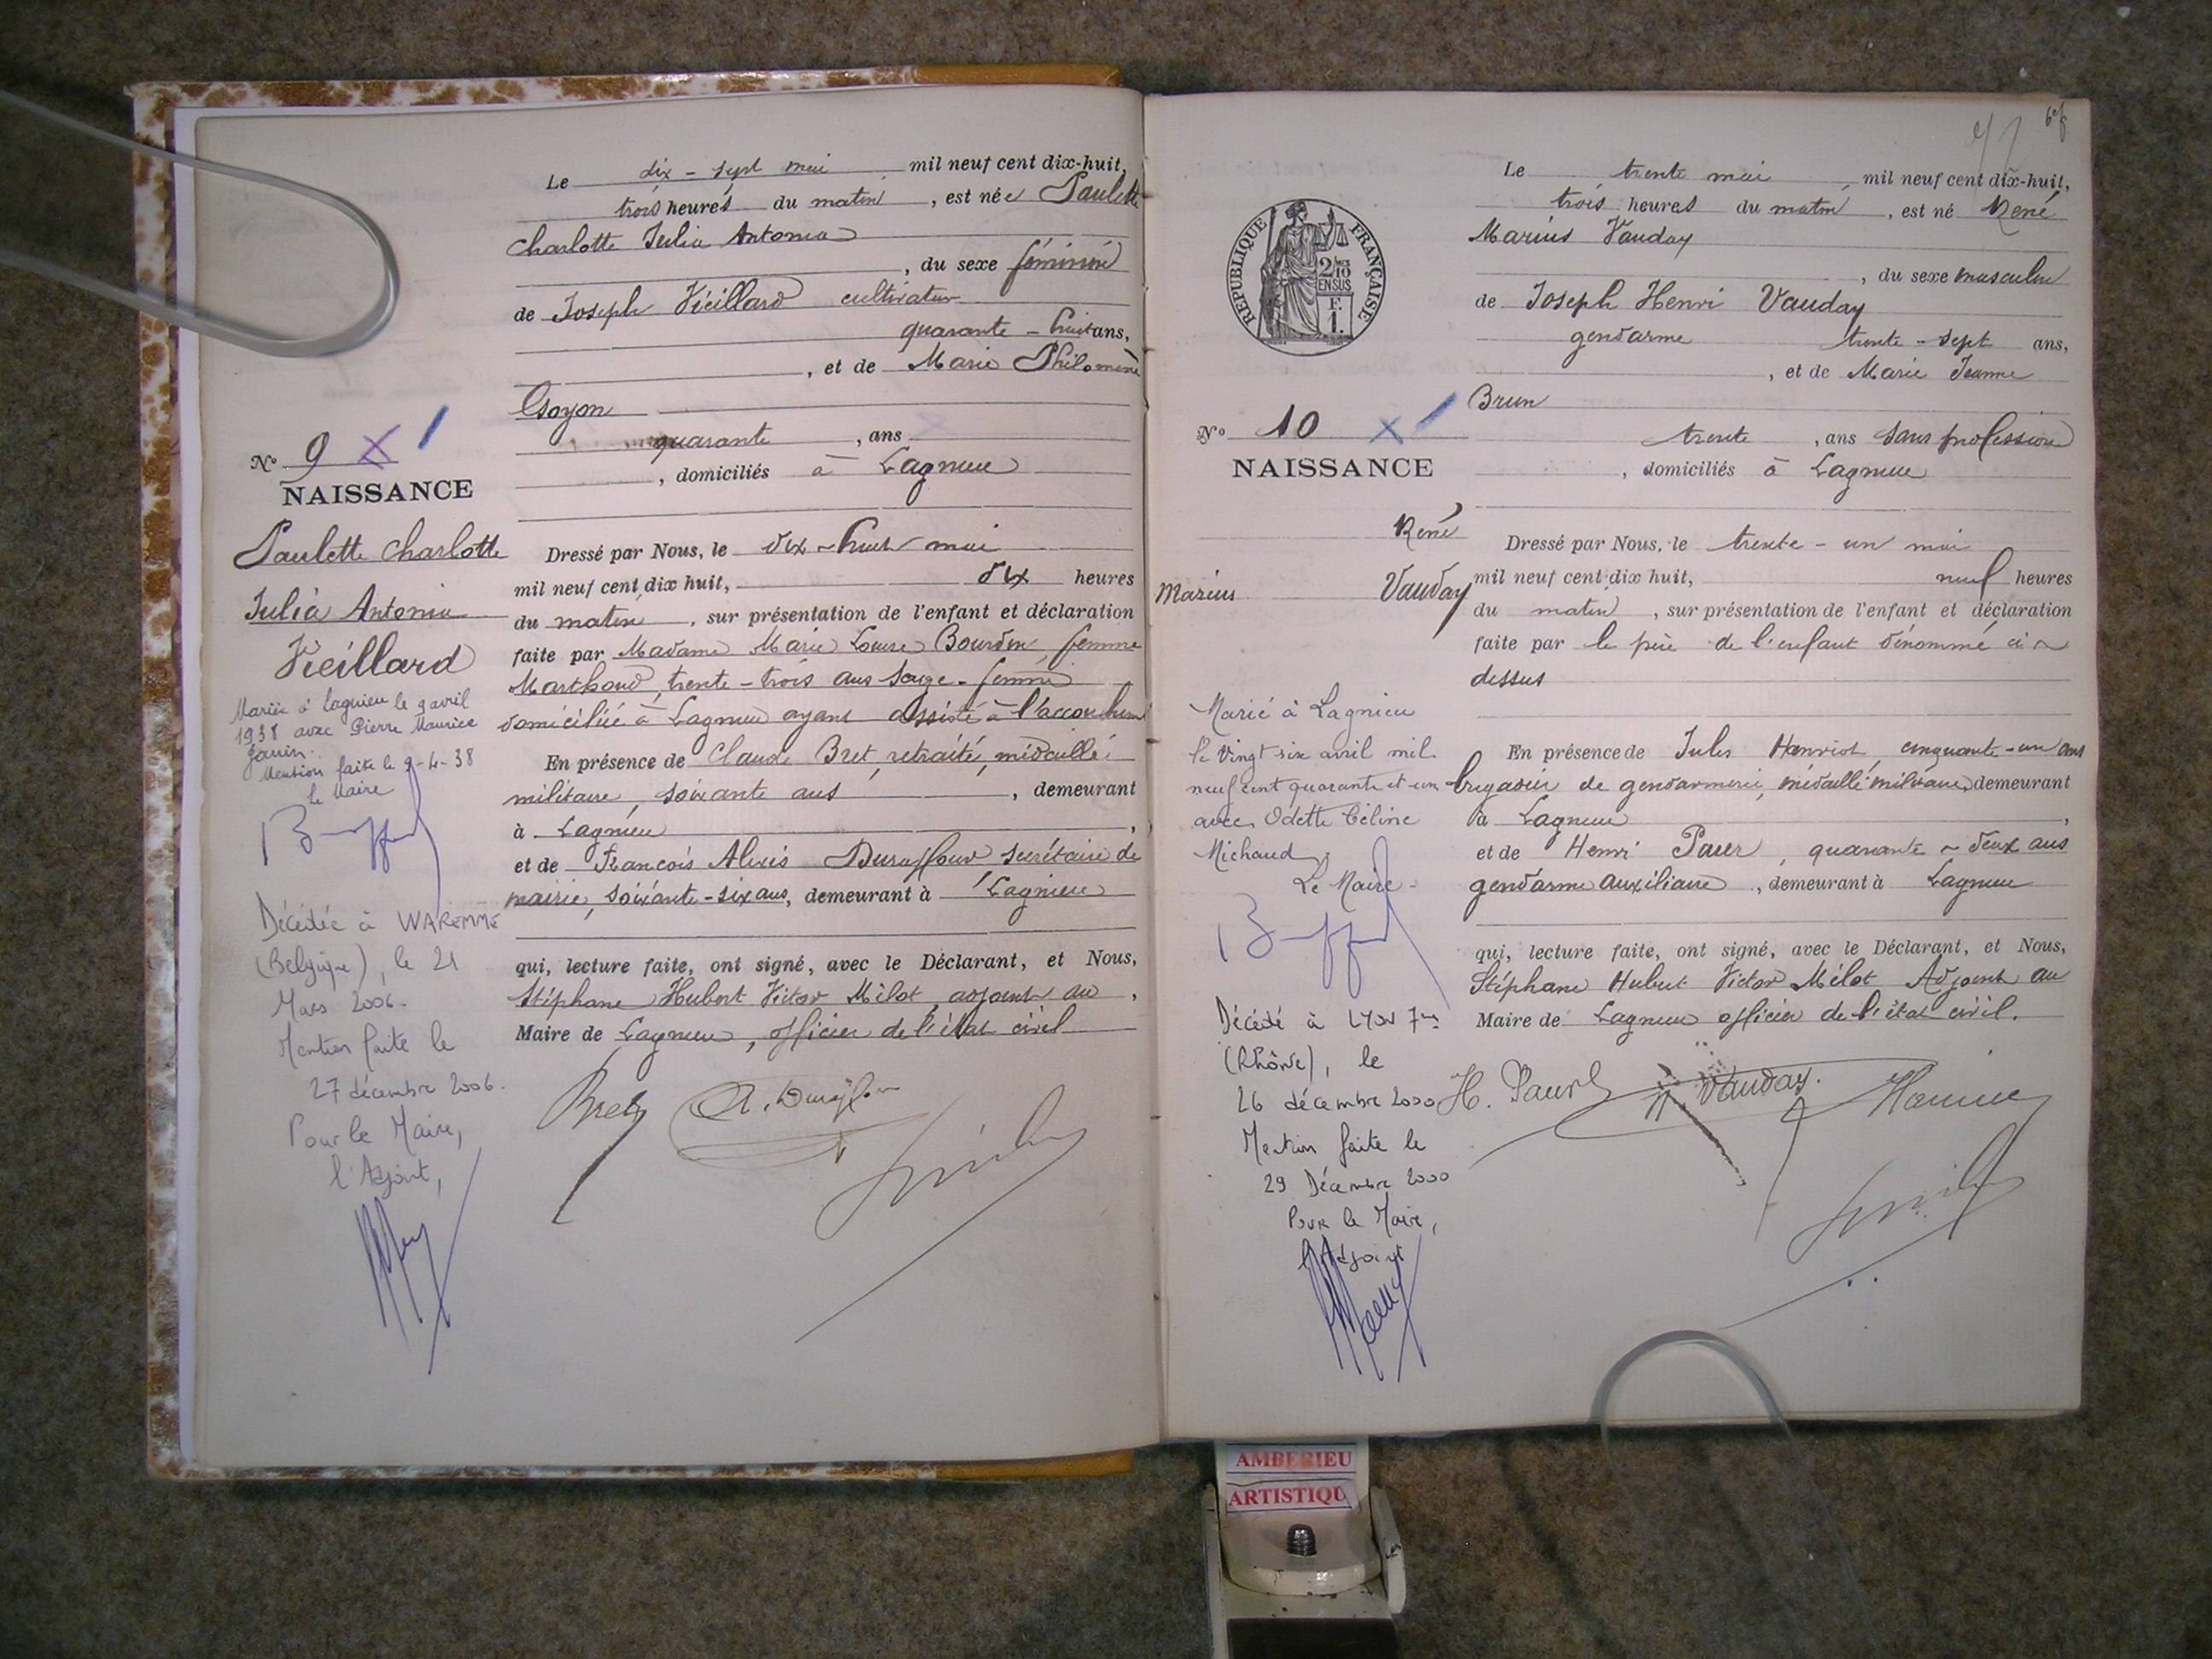 Le dix-sept mai mil neuf cent dix-huit,
trois heures du matin, est née Paulette
Charlotte Julia Antonia
, du sexe féminin
de Joseph Vieillard cultivateur
quarante-huit ans,
, et de Marie Philomène
Goyon
quarante, ans
, domiciliés à Lagnieu
N° 9 X
NAISSANCE
Paulette Charlotte
Julia Antonia
Vieillard
Mariée à Lagnieu le 9 avril
1938 avec Pierre Maurice
Janin.
Mention faite le 9-4-38
Le Maire
Décédée à WAREMME
(Belgique), le 21
Mars 2006.
Mention faite le
27 décembre 2006.
Pour le Maire,
l'Adjoint,
Dressé par Nous, le dix-huit mai
mil neuf cent dix huit, dix heures
du matin, sur présentation de l'enfant et déclaration
faite par Madame Marie Louise Bourdin femme
Marthoud, trente-trois ans sage-femme
domiciliée à Lagnieu ayant assisté à l'accouchem
En présence de Claude Bret, retraité, médaillé
militaire, soixante ans, demeurant
à Lagnieu,
et de François Alexis Duraffour secrétaire de
mairie, soixante-six ans, demeurant à Lagnieu
qui, lecture faite, ont signé, avec le Déclarant, et Nous,
Stéphane Hubert Victor Mélot, adjoint au,
Maire de Lagnieu, officier de l'état civil
Bret A. Duraffour
Le trente mai mil neuf cent dix-huit,
trois heures du matin, est né René
Marius Vauday
, du sexe masculin
de Joseph Henri Vauday
gendarme trente-sept ans,
, et de Marie Jeanne
Brun
trente, ans sans profession
, domiciliés à Lagnieu
REPUBLIQUE FRANÇAISE
2/10 EN SUS
F.
1.
N° 10 X
NAISSANCE
René
Marius Vauday
Marié à Lagnieu
le vingt six avril mil
neuf cent quarante et un
avec Odette Céline
Michaud.
Le Maire-
Décédé à LYON 7me
(Rhône), le
26 décembre 2000
Mention faite le
29 Décembre 2000
Pour le Maire,
l'Adjoint
Dressé par Nous, le trente-un mai
mil neuf cent dix huit, neuf heures
du matin, sur présentation de l'enfant et déclaration
faite par le père de l'enfant dénommé ci-
dessus
En présence de Jules Henriot, cinquante-un ans
brigadier de gendarmerie, médaillé militaire, demeurant
à Lagnieu,
et de Henri Paur, quarante-deux ans
gendarme auxiliaire, demeurant à Lagnieu
qui, lecture faite, ont signé, avec le Déclarant, et Nous,
Stéphane Hubert Victor Mélot Adjoint au
Maire de Lagnieu officier de l'état civil.
H. Paur Vauday.
AMBERIEU
ARTISTIQU